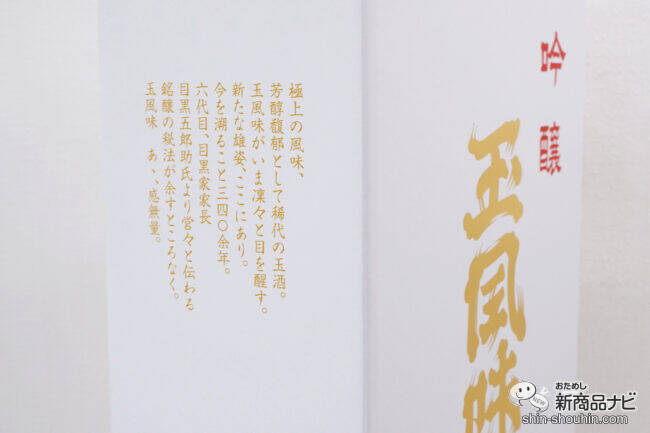 極上の風味、
芳醇馥郁として稀代の玉酒。
玉風味がいま凜々と目を醒す。
新たな雄姿、ここにあり。
今を溯ること三四〇余年。
六代目、目黒家家長
目黒五郎助氏より営々と伝わる
銘醸の秘法が余すところなく。
玉風味 あゝ、感無量。
吟醸
玉風味
おためし
新商品ナビ
NEW
shin-shouhin.com